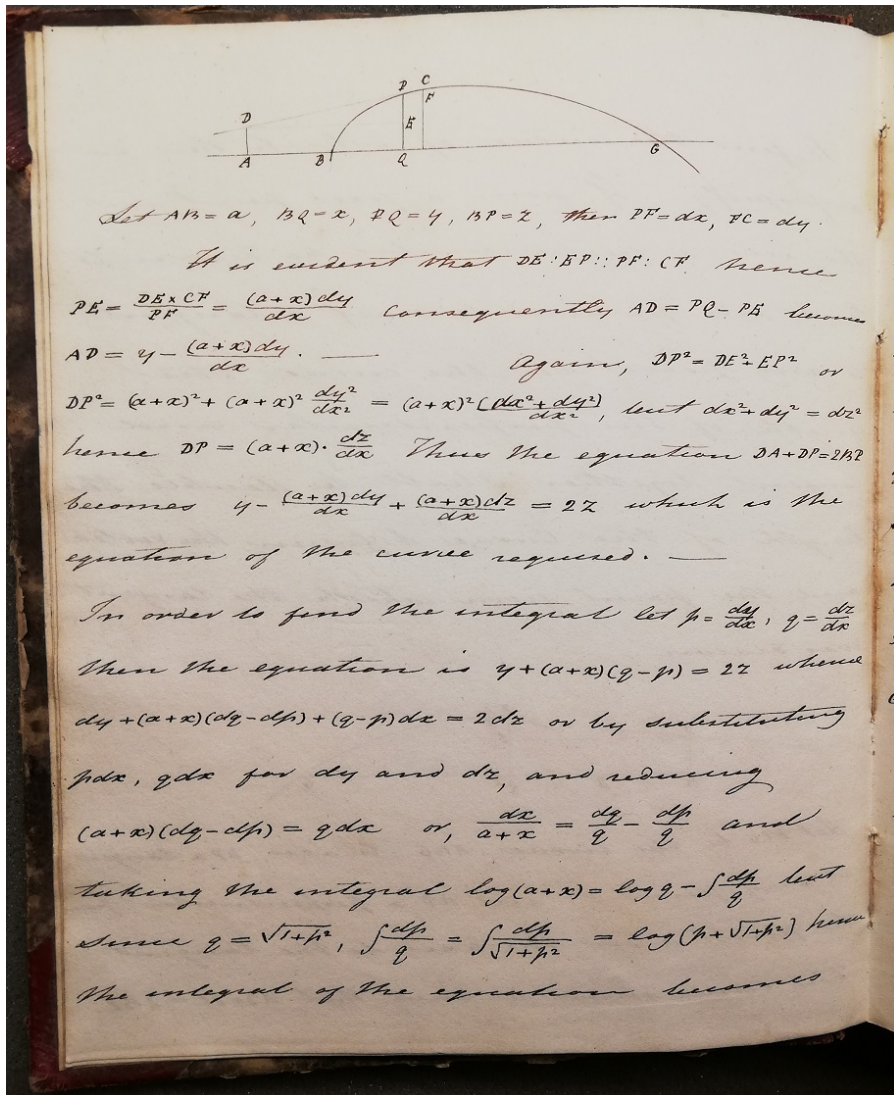 P C
D F
E
A B Q G
Let AB = a, BQ = x, PQ = y, BP = z, then PF = dx, FC = dy.
It is evident that DE : EP :: PF : CF hence
PE = DE × CF / PF = (a+x) dy / dx consequently AD = PQ − PE becomes
AD = y − (a+x) dy / dx . — Again, DP² = DE² + EP² or
DP² = (a+x)² + (a+x)² dy²/dx² = (a+x)² (dx² + dy²)/dx², but dx² + dy² = dz²
hence DP = (a+x) · dz/dx Thus the equation DA + DP = 2BP
becomes y − (a+x) dy / dx + (a+x) dz / dx = 2z which is the
equation of the curve required. —
In order to find the integral let p = dy/dx, q = dz/dx
then the equation is y + (a+x)(q−p) = 2z whence
dy + (a+x)(dq−dp) + (q−p) dx = 2dz or by substituting
pdx, qdx for dy and dz, and reducing
(a+x)(dq−dp) = qdx or, dx/(a+x) = dq/q − dp/q and
taking the integral log(a+x) = log q − ∫ dp/q but
since q = √1+p², ∫ dp/q = ∫ dp/√1+p² = log(p + √1+p²) hence
the integral of the equation becomes